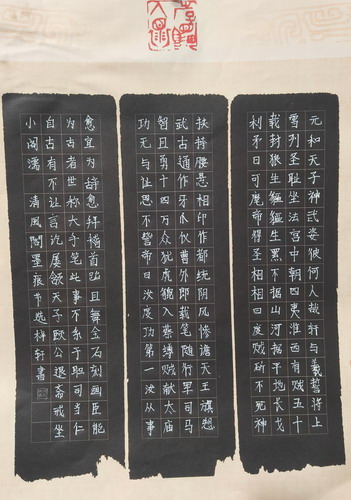 元和天子神武姿彼何人哉轩与羲誓将上
雪列圣耻坐法宫中朝四夷淮西有贼五十
载封狼生貙貙生罴不据山河据平地长戈
利矛日可麾帝得圣相相曰度贼斫不死神
扶持腰悬相印作都统阴风惨澹天王旗愬
武古通作牙爪仪曹外郎载笔随行军司马
智且勇十四万众犹虎貔入蔡缚贼献太庙
功无与让恩不訾帝曰汝度功第一汝从事
愈宜为辞愈拜稽首蹈且舞金石刻画臣能
为古者世称大手笔此事不系于职司当仁
自古有不让言讫屡颔天子颐公退斋戒坐
小阁濡 清风阁墨痕节选梓轩書